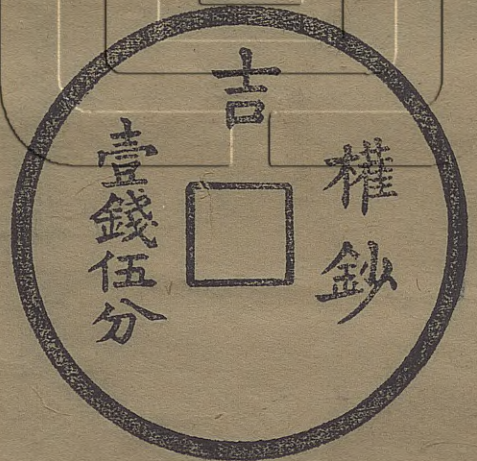 吉
權鈔
壹錢伍分